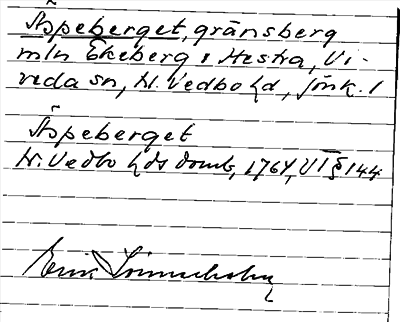 Äspeberget, gränsberg
mln Ekeberg o Hestra, Vi-
reda sn, N. Vedbo hd, Jönk. l
Äspeberget
N. Vedbo hds domb, 1764, VI § 144
Eric